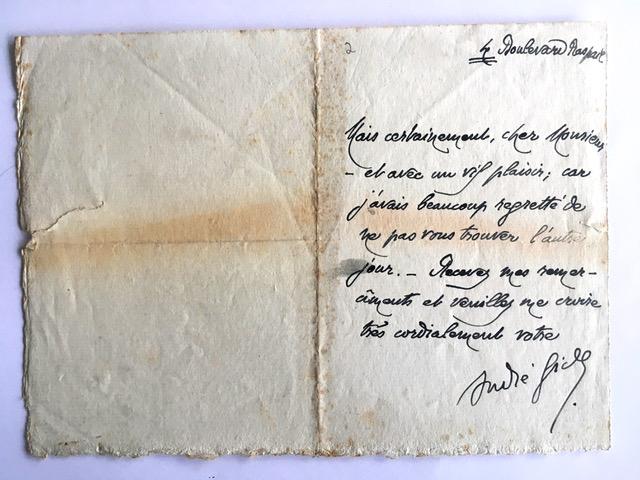 2
4 Boulevard Raspail
Mais certainement, cher Monsieur
– et avec un vif plaisir; car
j'avais beaucoup regretté de
ne pas vous trouver l'autre
jour. – Recevez mes remer-
ciments et veuillez me croire
très cordialement votre
André Gide.